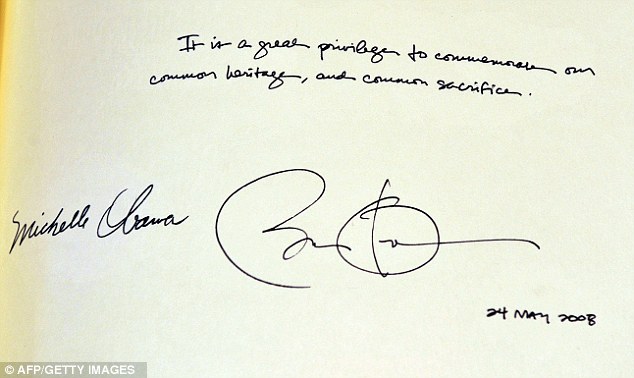 It is a great privilege to commemorate our
common heritage, and common sacrifice.
Michelle Obama
Barack Obama
24 MAY 2008
© AFP/GETTY IMAGES